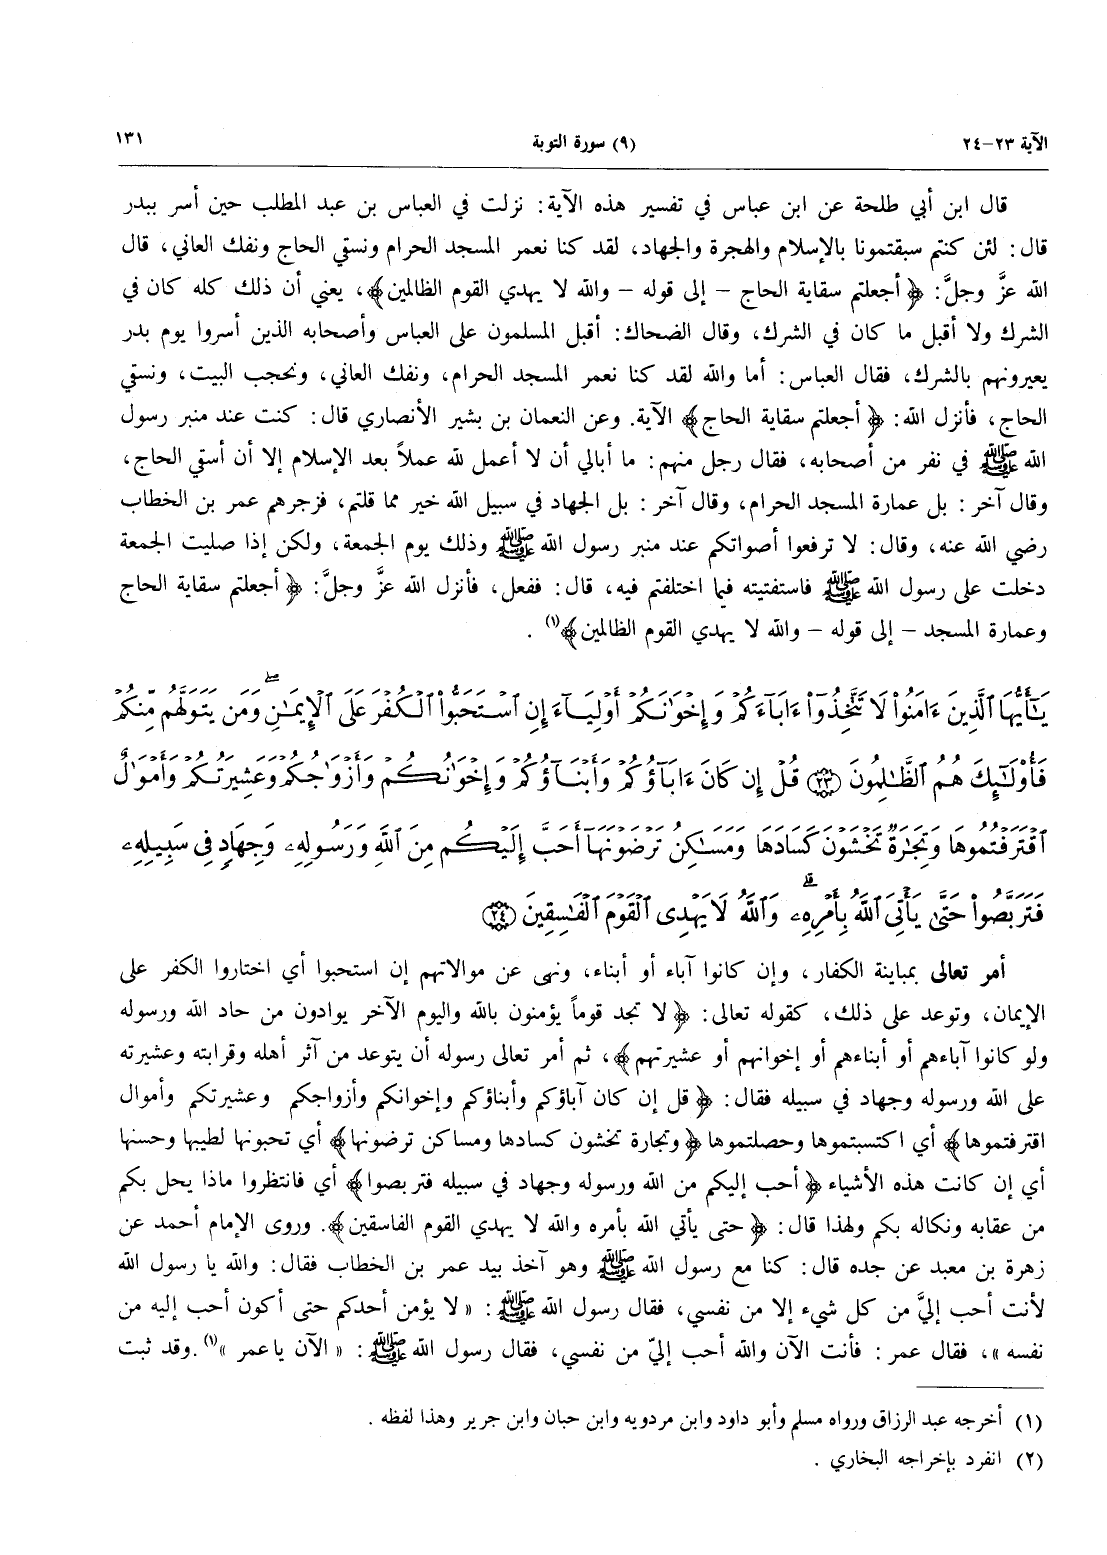 الآية ٢٣-٢٤ (٩) سورة التوبة ١٣١
قال ابن أبي طلحة عن ابن عباس في تفسير هذه الآية: نزلت في العباس بن عبد المطلب حين أسر ببدر
قال: لئن كنتم سبقتمونا بالإسلام والهجرة والجهاد، لقد كنا نعمر المسجد الحرام ونسقي الحاج ونفك العاني، قال
الله عزَّ وجلَّ: ﴿أجعلتم سقاية الحاج - إلى قوله - والله لا يهدي القوم الظالمين﴾، يعني أن ذلك كله كان في
الشرك ولا أقبل ما كان في الشرك، وقال الضحاك: أقبل المسلمون على العباس وأصحابه الذين أسروا يوم بدر
يعيرونهم بالشرك، فقال العباس: أما والله لقد كنا نعمر المسجد الحرام، ونفك العاني، ونحجب البيت، ونسقي
الحاج، فأنزل الله: ﴿أجعلتم سقاية الحاج﴾ الآية. وعن النعمان بن بشير الأنصاري قال: كنت عند منبر رسول
الله ﷺ في نفر من أصحابه، فقال رجل منهم: ما أبالي أن لا أعمل لله عملاً بعد الإسلام إلا أن أسقي الحاج،
وقال آخر: بل عمارة المسجد الحرام، وقال آخر: بل الجهاد في سبيل الله خير مما قلتم، فزجرهم عمر بن الخطاب
رضي الله عنه، وقال: لا ترفعوا أصواتكم عند منبر رسول الله ﷺ وذلك يوم الجمعة، ولكن إذا صليت الجمعة
دخلت على رسول الله ﷺ فاستفتيته فيما اختلفتم فيه، قال: ففعل، فأنزل الله عزَّ وجلَّ: ﴿أجعلتم سقاية الحاج
وعمارة المسجد - إلى قوله - والله لا يهدي القوم الظالمين﴾(١).
يَـٰٓأَيُّهَا ٱلَّذِينَ ءَامَنُوا۟ لَا تَتَّخِذُوٓا۟ ءَابَآءَكُمْ وَإِخْوَٰنَكُمْ أَوْلِيَآءَ إِنِ ٱسْتَحَبُّوا۟ ٱلْكُفْرَ عَلَى ٱلْإِيمَـٰنِ ۖ وَمَن يَتَوَلَّهُم مِّنكُمْ
فَأُو۟لَـٰٓئِكَ هُمُ ٱلظَّـٰلِمُونَ ٢٣ قُلْ إِن كَانَ ءَابَآؤُكُمْ وَأَبْنَآؤُكُمْ وَإِخْوَٰنُكُمْ وَأَزْوَٰجُكُمْ وَعَشِيرَتُكُمْ وَأَمْوَٰلٌ
ٱقْتَرَفْتُمُوهَا وَتِجَـٰرَةٌ تَخْشَوْنَ كَسَادَهَا وَمَسَـٰكِنُ تَرْضَوْنَهَآ أَحَبَّ إِلَيْكُم مِّنَ ٱللَّهِ وَرَسُولِهِۦ وَجِهَادٍ فِى سَبِيلِهِۦ
فَتَرَبَّصُوا۟ حَتَّىٰ يَأْتِىَ ٱللَّهُ بِأَمْرِهِۦ ۗ وَٱللَّهُ لَا يَهْدِى ٱلْقَوْمَ ٱلْفَـٰسِقِينَ ٢٤
أمر تعالى بمباينة الكفار، وإن كانوا آباء أو أبناء، ونهى عن موالاتهم إن استحبوا أي اختاروا الكفر على
الإيمان، وتوعد على ذلك، كقوله تعالى: ﴿لا تجد قوماً يؤمنون بالله واليوم الآخر يوادون من حاد الله ورسوله
ولو كانوا آباءهم أو أبناءهم أو إخوانهم أو عشيرتهم﴾، ثم أمر تعالى رسوله أن يتوعد من آثر أهله وقرابته وعشيرته
على الله ورسوله وجهاد في سبيله فقال: ﴿قل إن كان آباؤكم وأبناؤكم وإخوانكم وأزواجكم وعشيرتكم وأموال
اقترفتموها﴾ أي اكتسبتموها وحصلتموها ﴿وتجارة تخشون كسادها ومساكن ترضونها﴾ أي تحبونها لطيبها وحسنها
أي إن كانت هذه الأشياء ﴿أحب إليكم من الله ورسوله وجهاد في سبيله فتربصوا﴾ أي فانتظروا ماذا يحل بكم
من عقابه ونكاله بكم ولهذا قال: ﴿حتى يأتي الله بأمره والله لا يهدي القوم الفاسقين﴾. وروى الإمام أحمد عن
زهرة بن معبد عن جده قال: كنا مع رسول الله ﷺ وهو آخذ بيد عمر بن الخطاب فقال: والله يا رسول الله
لأنت أحب إليَّ من كل شيء إلا من نفسي، فقال رسول الله ﷺ: « لا يؤمن أحدكم حتى أكون أحب إليه من
نفسه »، فقال عمر: فأنت الآن والله أحب إليّ من نفسي، فقال رسول الله ﷺ: « الآن يا عمر »(١). وقد ثبت
(١) أخرجه عبد الرزاق ورواه مسلم وأبو داود وابن مردويه وابن حبان وابن جرير وهذا لفظه.
(٢) انفرد بإخراجه البخاري.